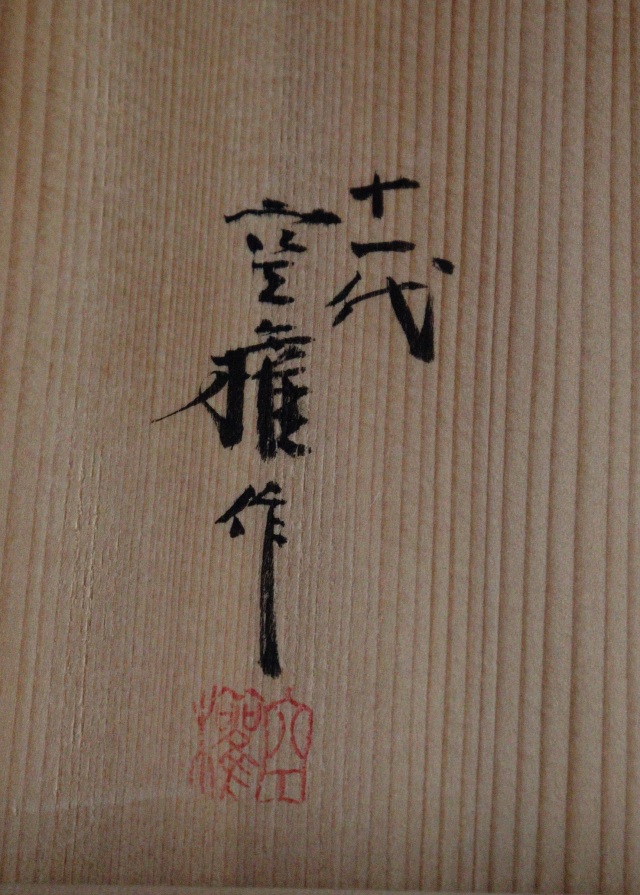 十一代
空權作